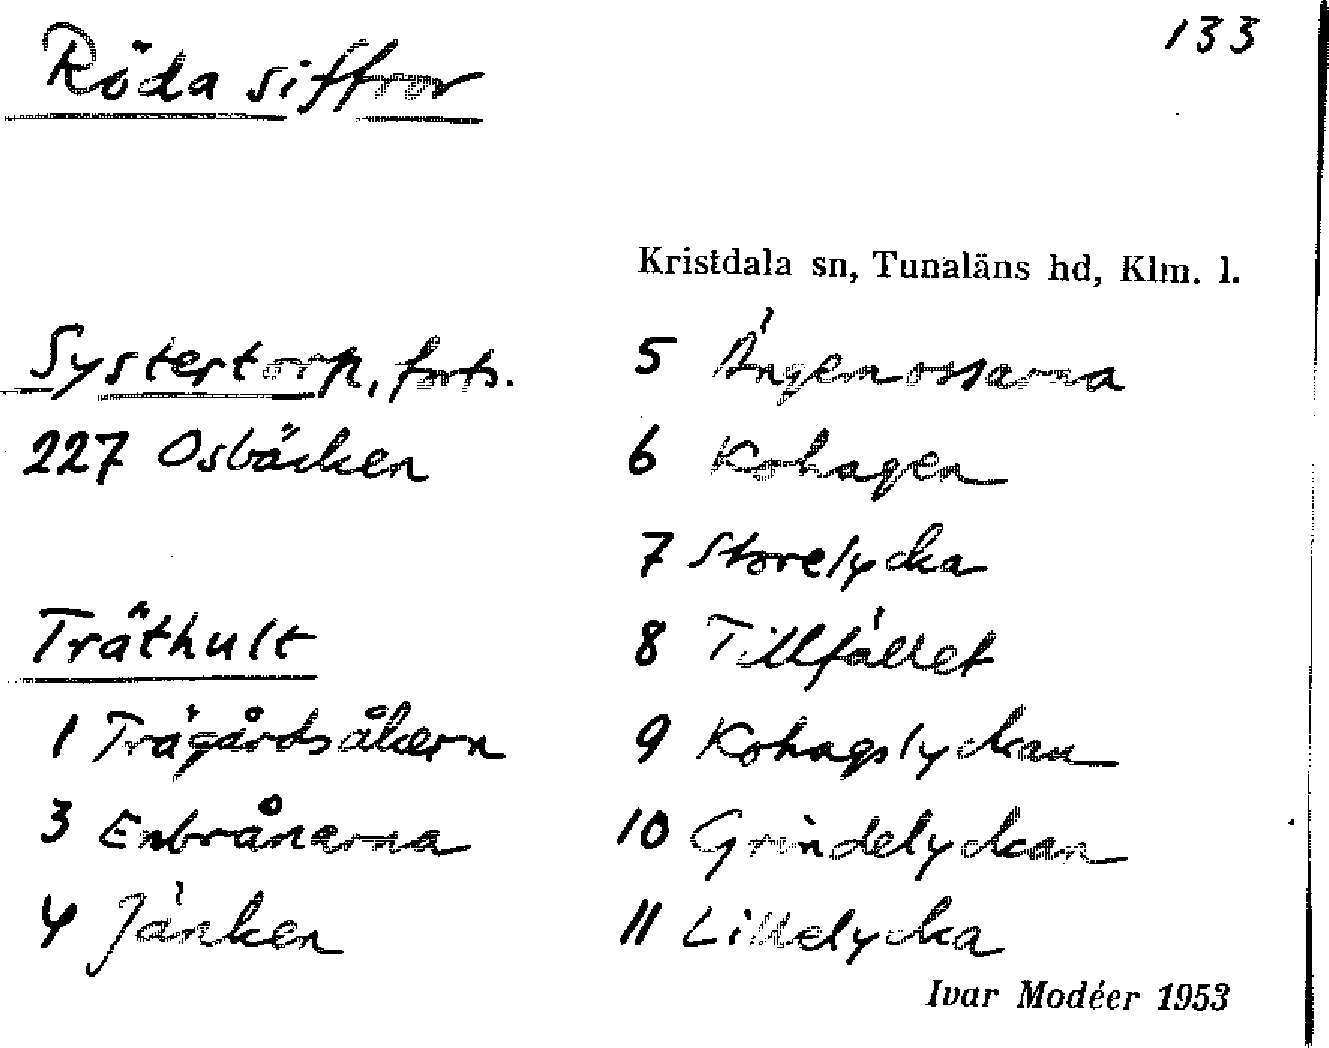 133
Röda siffror
Kristdala sn, Tunaläns hd, Klm. l.
Systertorp, forts.
227 Osbäcken
Träthult
1 Trägårdsåkern
3 Enbrånarna
4 Jänken
5 Ängemossarna
6 Kohagen
7 Storelycka
8 Tillfället
9 Kohagslyckan
10 Grindelyckan
11 Lillelycka
Ivar Modéer 1953